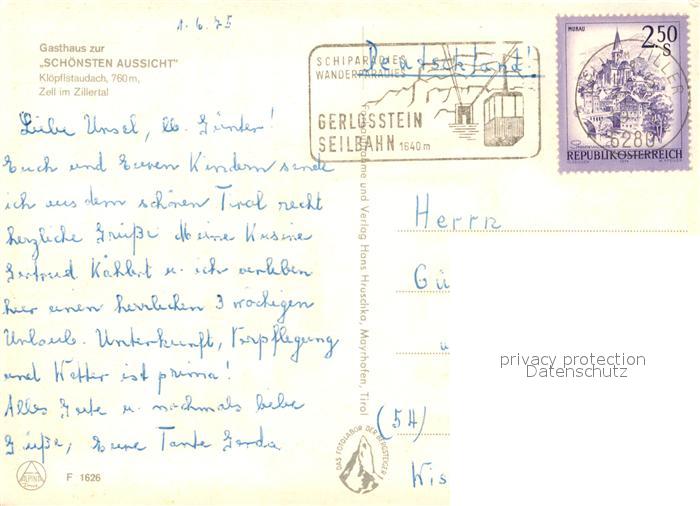 1.6.75
Gasthaus zur
„SCHÖNSTEN AUSSICHT“
Klöpflstaudach, 760m,
Zell im Zillertal
Deutschland!
SCHIPARADIES
WANDERPARADIES
GERLOSSTEIN
SEILBAHN 1640m
2.50
S
MURAU
ZILLER
6280
REPUBLIK ÖSTERREICH
Liebe Ursel, lb. Günter!
Euch und Euren Kindern sende
ich aus dem schönen Tirol recht
herzliche Grüße. Meine Kusine
Gertrud u. ich verleben
hier einen herrlichen 3 wöchigen
Urlaub. Unterkunft, Verpflegung
und Wetter ist prima!
Alles Gute u. nochmals liebe
Grüße, Eure Tante Gerda
und Verlag Hans Hruschka, Mayrhofen, Tirol
Herrn
Gü
u
(54)
Wis
privacy protection
Datenschutz
DAS FOTOLABOR DER BERGSTEIGER
ALPINA
F 1626